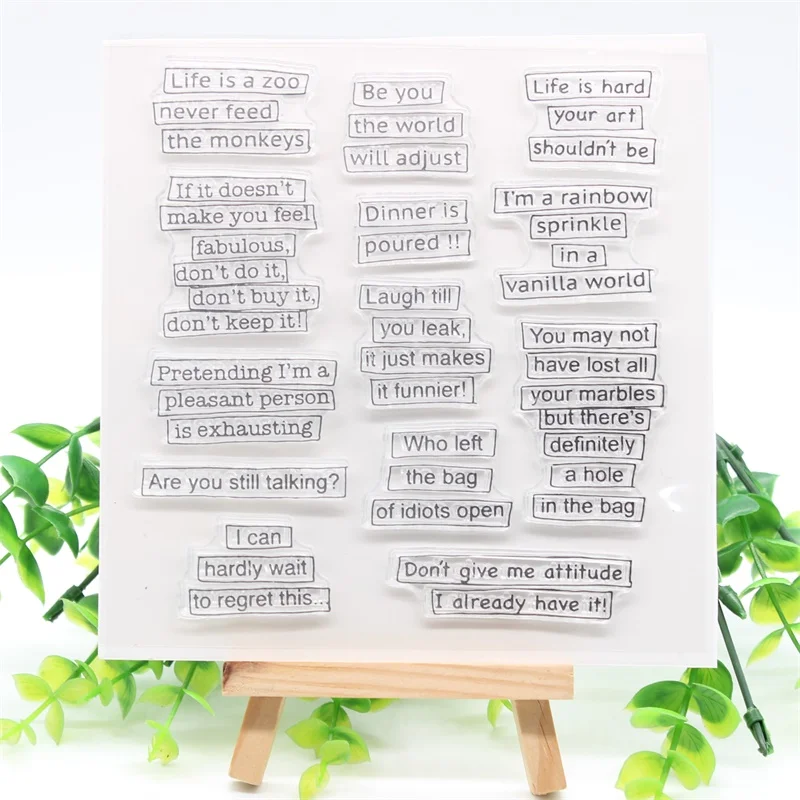 Life is a zoo
never feed
the monkeys
If it doesn't
make you feel
fabulous,
don't do it,
don't buy it,
don't keep it!
Pretending I'm a
pleasant person
is exhausting
Are you still talking?
I can
hardly wait
to regret this...
Be you
the world
will adjust
Dinner is
poured !!
Laugh till
you leak,
it just makes
it funnier!
Who left
the bag
of idiots open
Life is hard
your art
shouldn't be
I'm a rainbow
sprinkle
in a
vanilla world
You may not
have lost all
your marbles
but there's
definitely
a hole
in the bag
Don't give me attitude
I already have it!